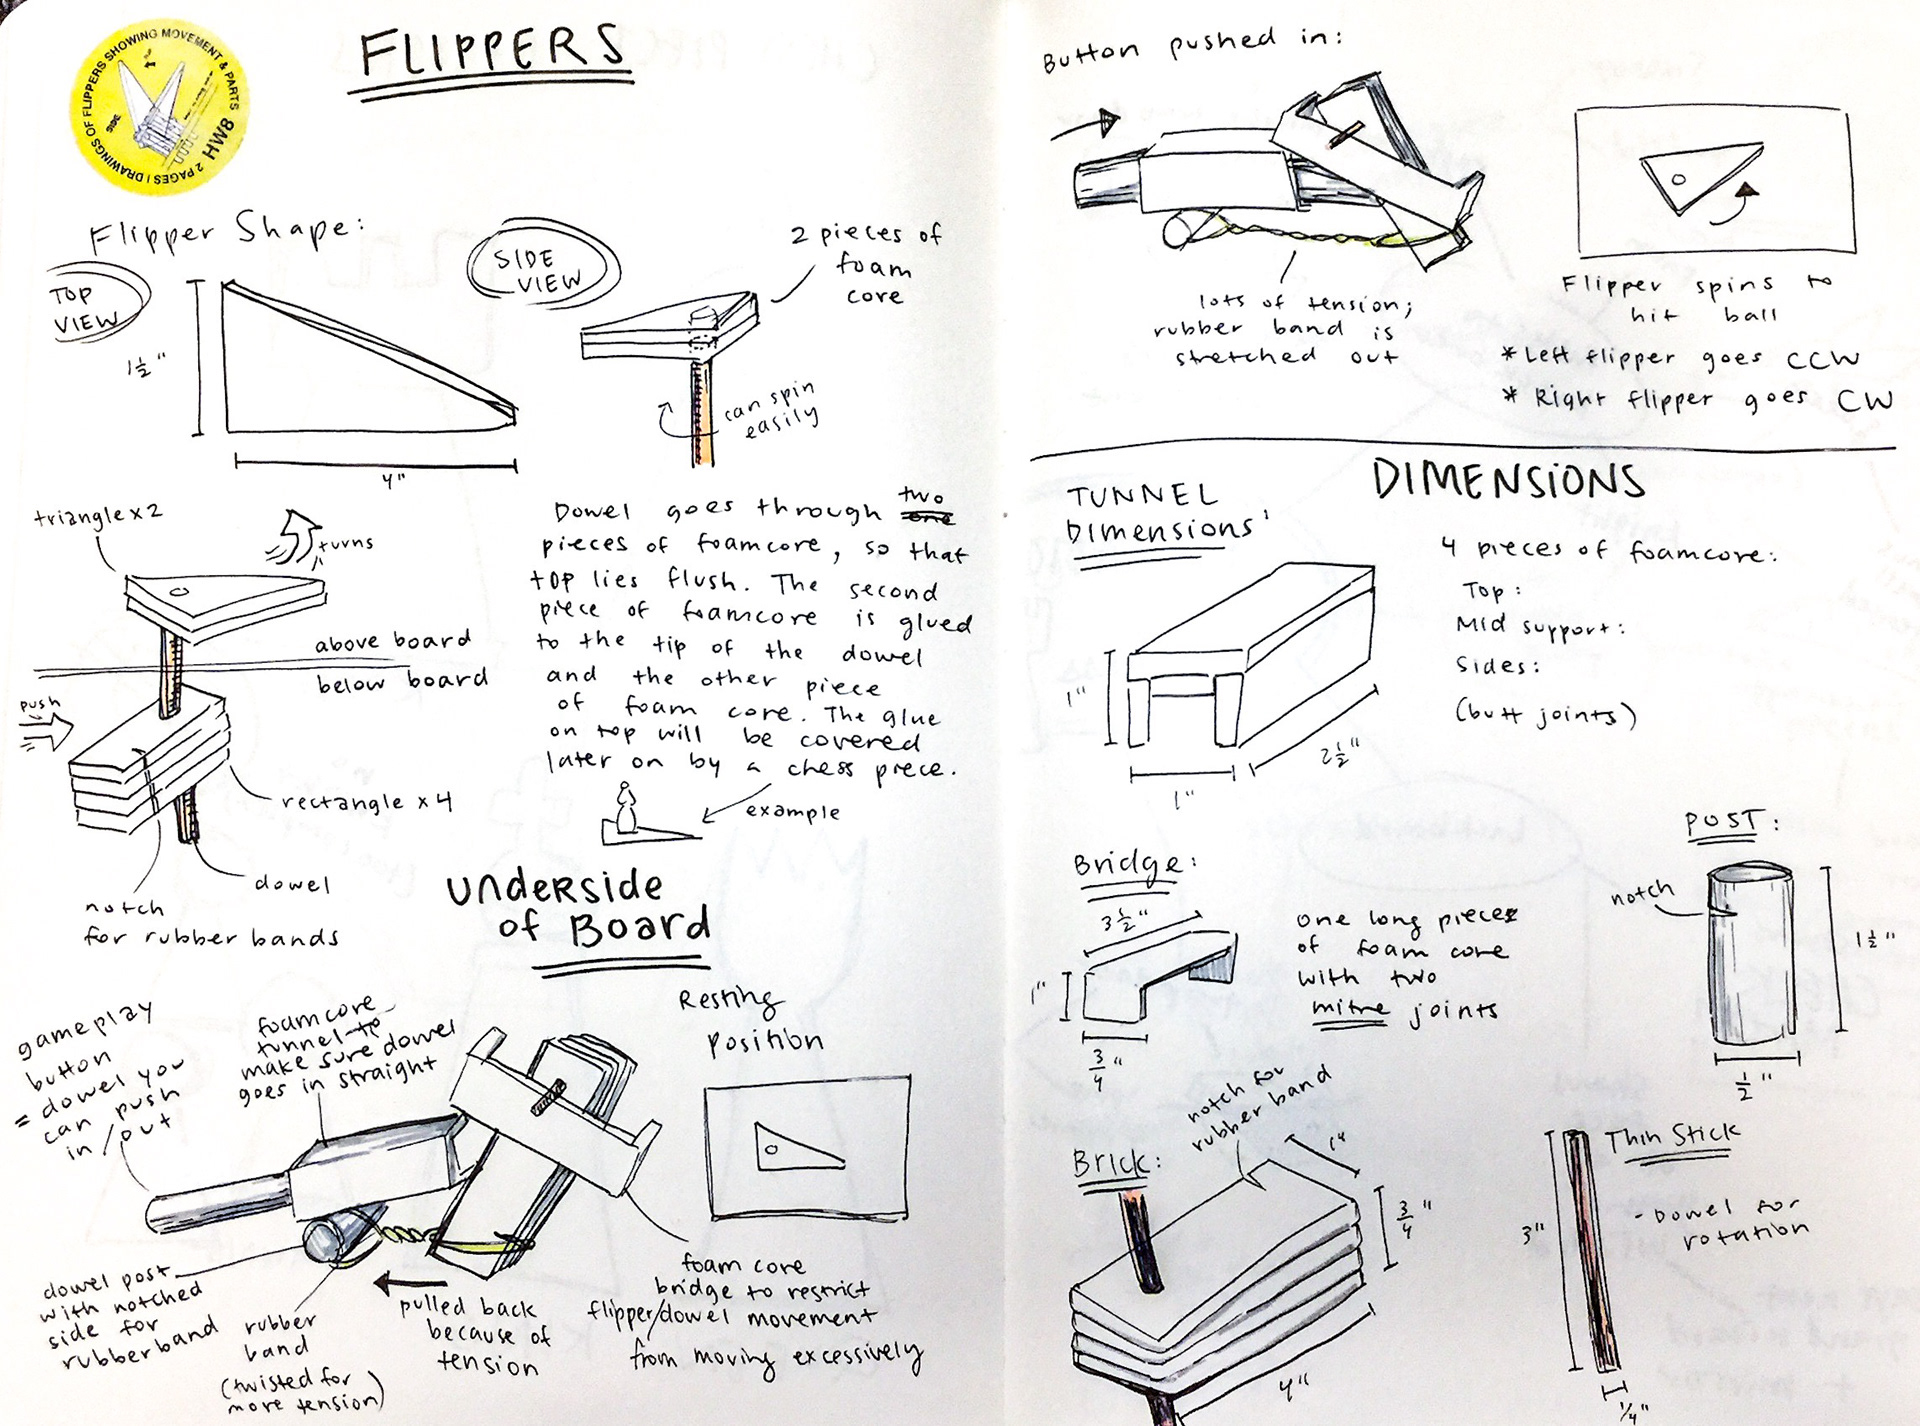 FLIPPERS
DRAWINGS OF FLIPPERS SHOWING MOVEMENT & PARTS
HW8
2 PAGES |
SIDE
Flipper Shape:
TOP
VIEW
1½"
4"
SIDE
VIEW
2 pieces of
foam
core
can spin
easily
triangle x 2
turns
above board
below board
push
rectangle x 4
dowel
notch
for rubber bands
Dowel goes through two one
pieces of foamcore, so that
top lies flush. The second
piece of foamcore is glued
to the tip of the dowel
and the other piece
of foam core. The glue
on top will be covered
later on by a chess piece.
example
Underside
of Board
gameplay
button
= dowel you
can push
in/out
foamcore
tunnel to
make sure dowel
goes in straight
Resting
position
dowel post
with notched
side for
rubberband
rubber
band
(twisted for
more tension)
pulled back
because of
tension
foam core
bridge to restrict
flipper/dowel movement
from moving excessively
Button pushed in:
lots of tension;
rubber band is
stretched out
Flipper spins to
hit ball
* Left flipper goes CCW
* Right flipper goes CW
DIMENSIONS
TUNNEL
Dimensions'
1"
1"
2½"
4 pieces of foamcore:
Top:
Mid support:
Sides:
(butt joints)
Bridge:
3½"
1"
¾"
one long piece
of foam core
with two
mitre joints
POST:
notch
1½"
½"
Brick:
notch for
rubber band
1"
¾"
4"
Thin Stick
3"
- Dowel for
rotation
¼"